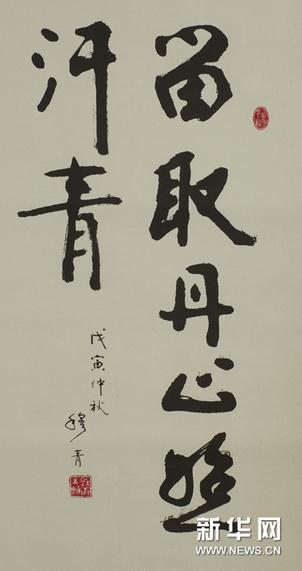 留取丹心照
汗青
戊寅仲秋
穆青
新华网
WWW.NEWS.CN